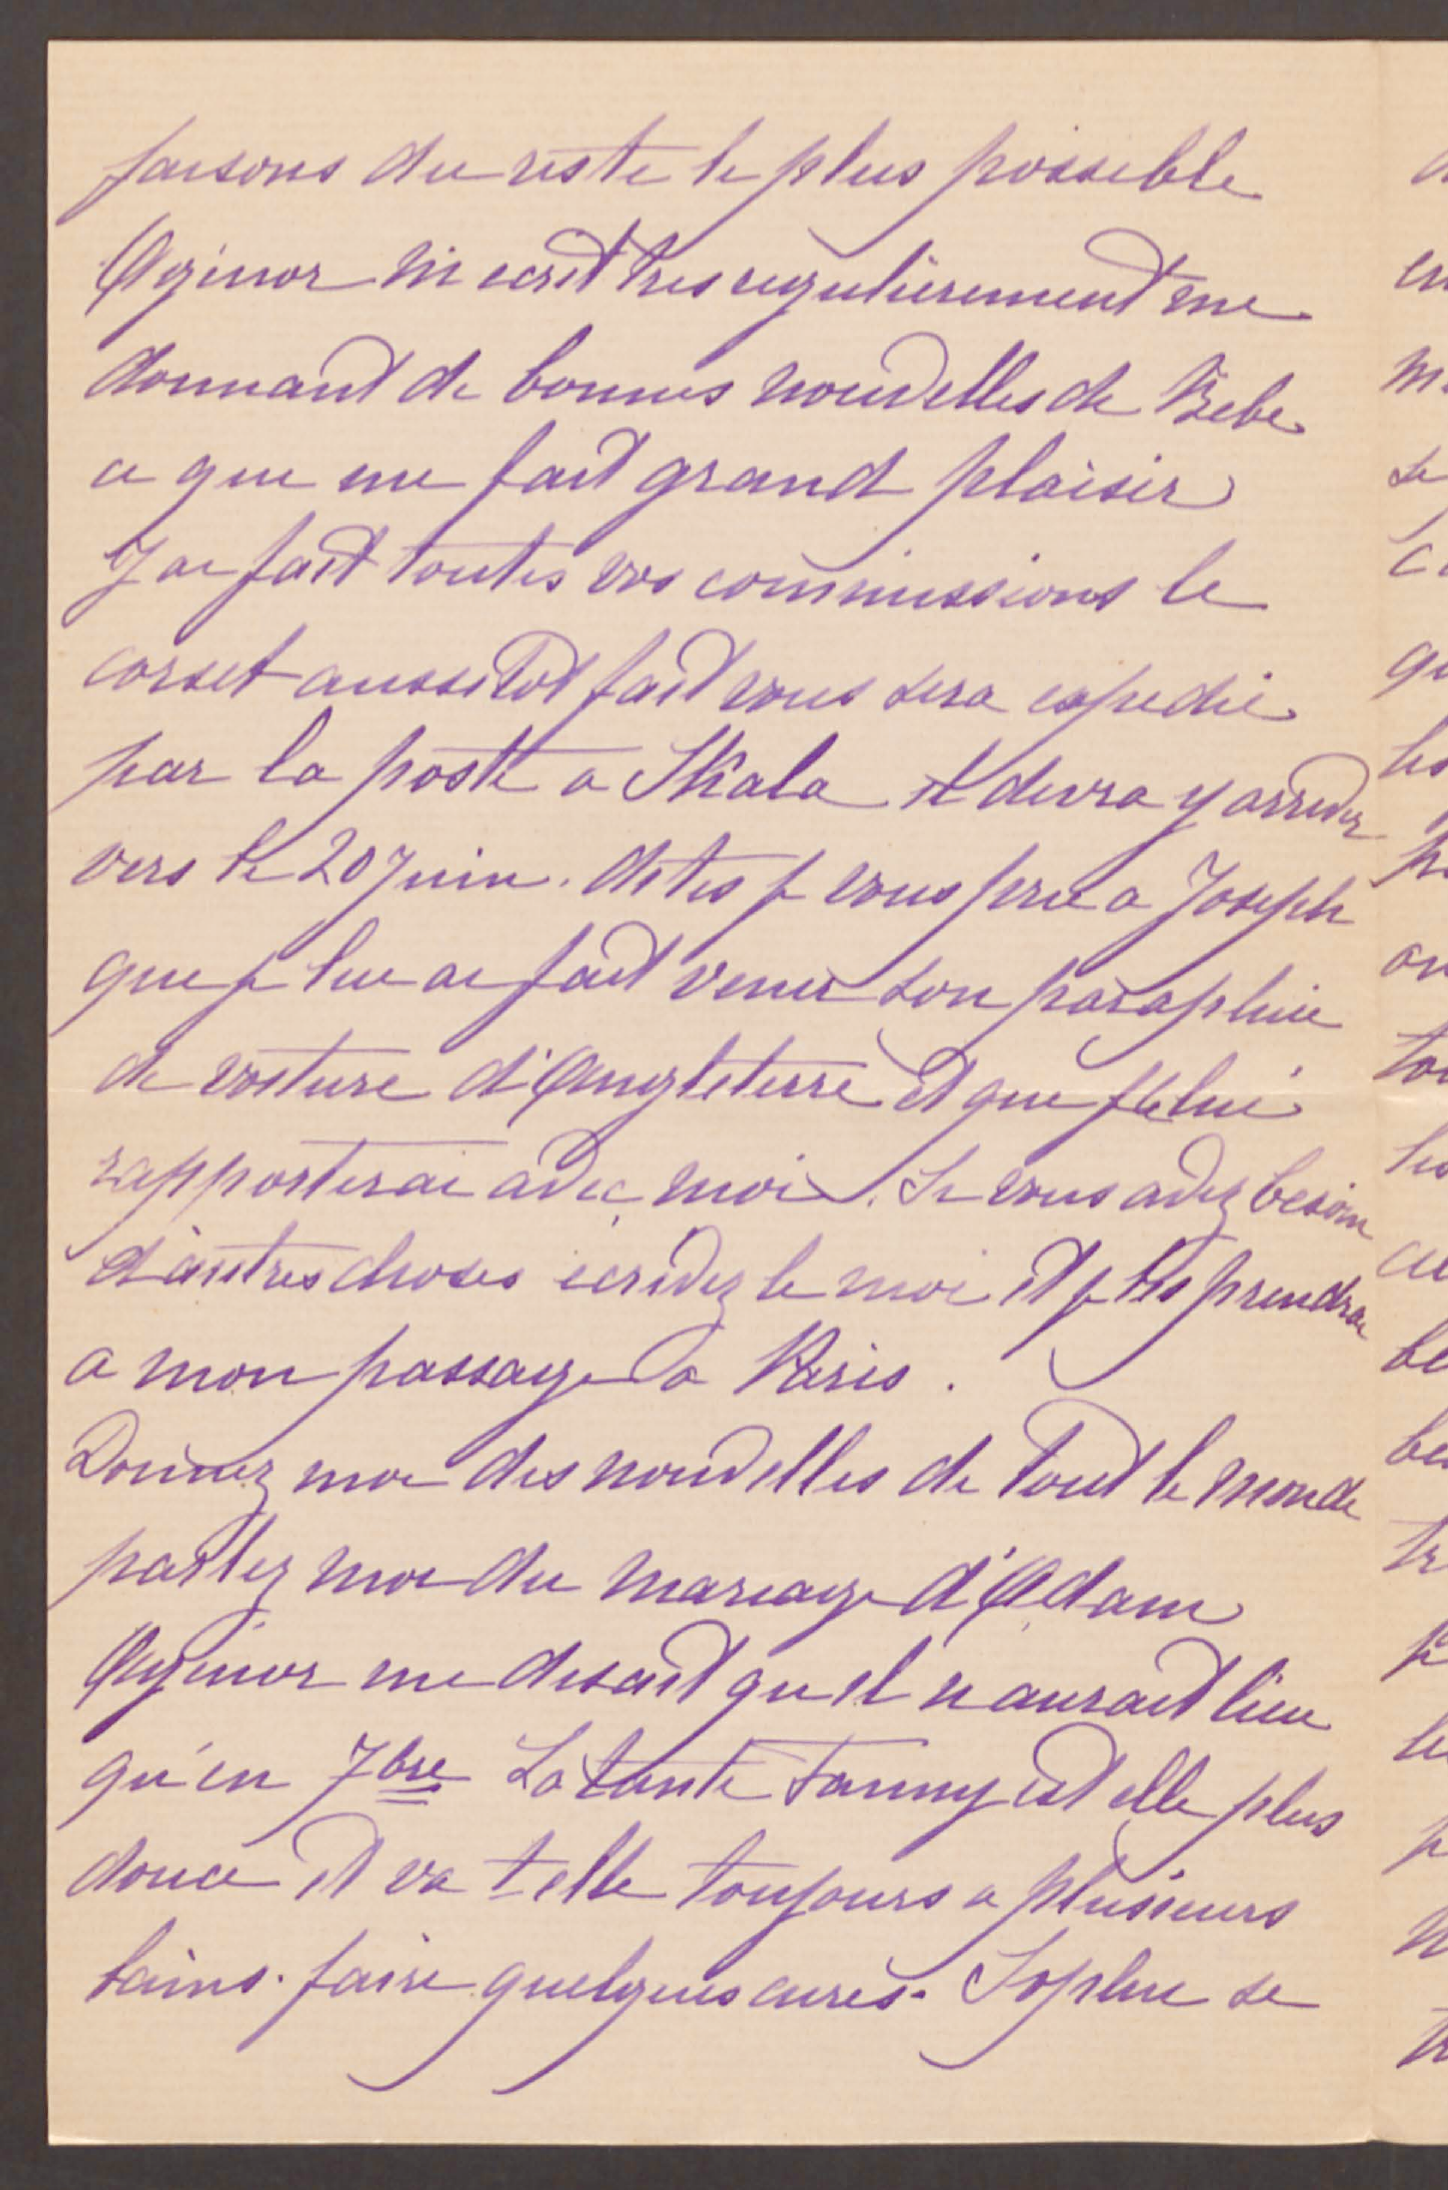 faisons du reste le plus possible
Agénor m'ecrit tres regulièrement me
donnant de bonnes nouvelles de Bebe
ce que me fait grand plaisir
J'ai fait toutes vos commissions le
corset aussitot fait vous sera expedié
par la poste a Skala et devra y arriver
vers le 20 Juin. dites je vous prie a Joseph
que je lui ai fait venir son parapluie
de voiture d'Angleterre et que je le lui
rapporterai avec moi. Si vous avez besoin
d'autres choses ecrivez le moi et je les prendrai
a mon passage a Paris.
Donnez moi des nouvelles de tout le monde
parlez moi du mariage d'Adam
Agénor me disait qu'il n'aurait lieu
qu'en 7bre La tante Fanny est elle plus
douce et va t elle toujours a plusieurs
bains. faire quelques cures. Sophie se